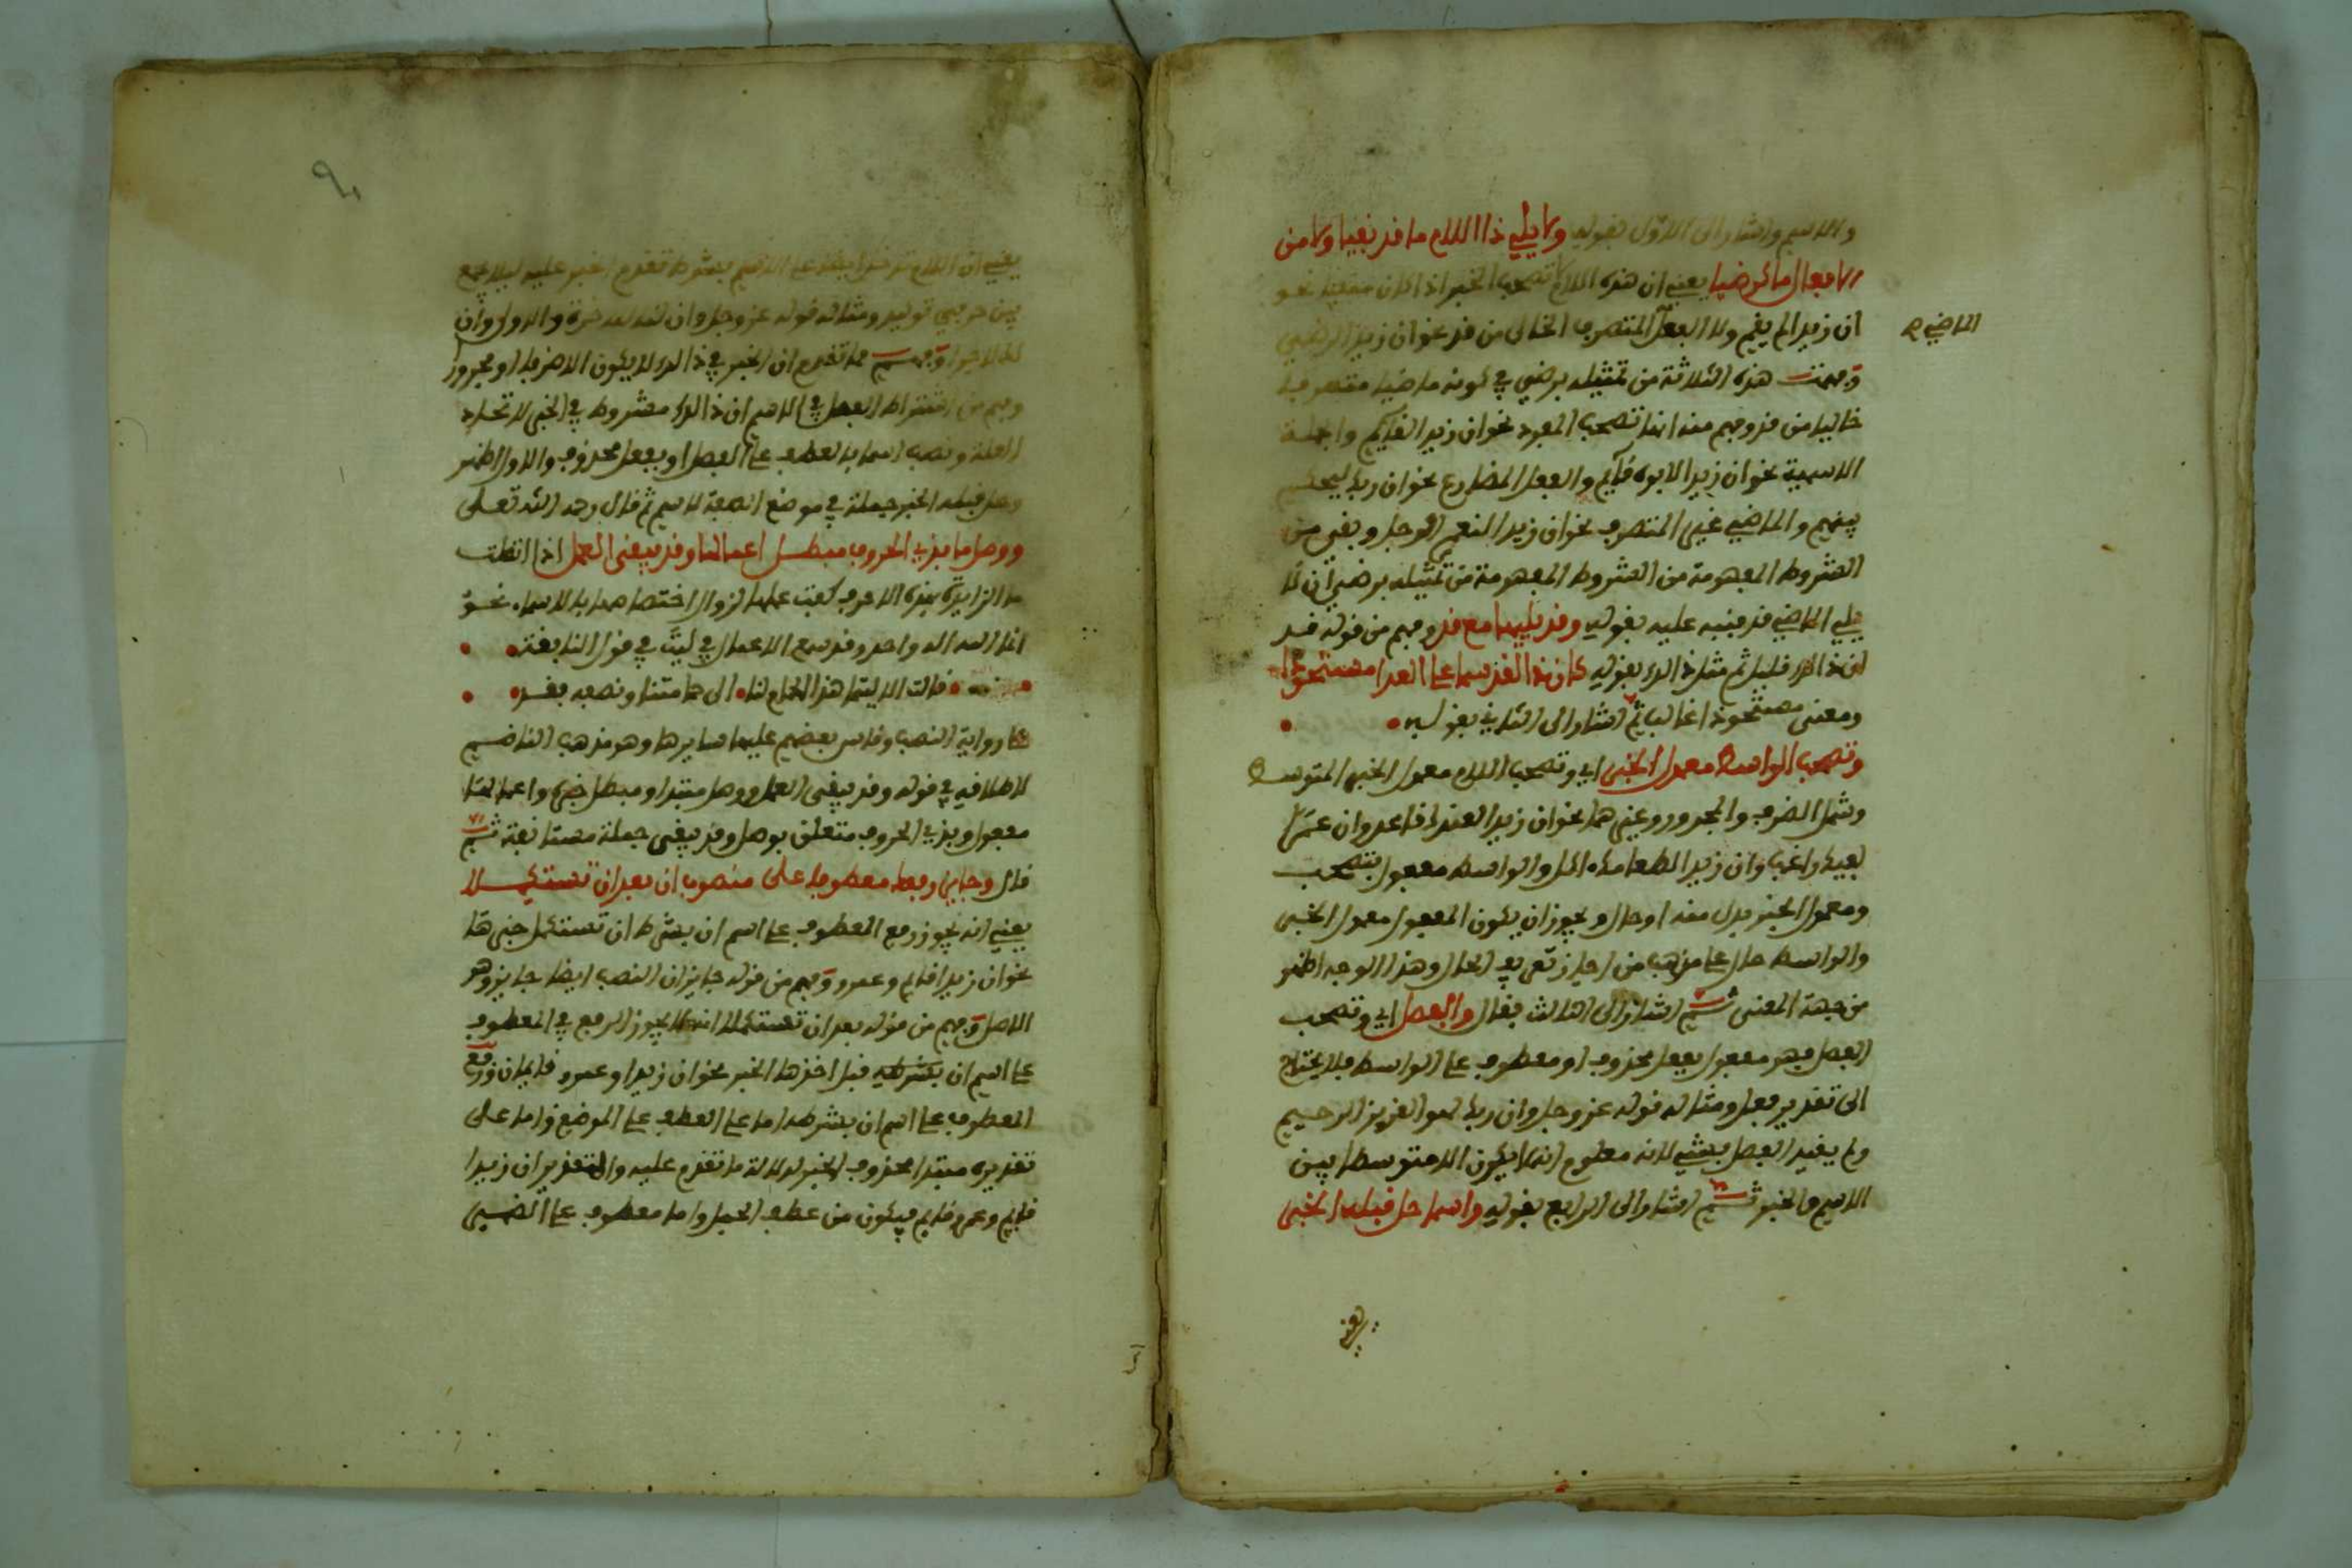 والاسم واشار الى الاول بقوله ولا يلي ذا اللام ما قد نفيا ولا من
الافعال ما كرضيا يعني ان هذه اللام لا تصحب الخبر اذا كان منفيا نحو
ان زيدا لم يقم ولا الفعل المتصرف الخالي من قد نحو ان زيدا لرضي
الماضي
وفهمت هذه الثلاثة من تمثيله برضي في كونه ماضيا متصرفا
خاليا من قد وفهم منه انها تصحب المفرد نحو ان زيدا لقايم والجملة
الاسمية نحو ان زيدا لابوه قايم والفعل المضارع نحو ان ربك ليحكم
بينهم والماضي غير المتصرف نحو ان زيدا لنعم الرجل وبقي من
الشروط المفهومة من الشروط المفهومة من تمثيله برضي ان لا
يلي الماضي قد فنبه عليه بقوله وقد يليها مع قد وفهم من قوله قد
ان ذالك قليل ثم مثل ذالك بقوله كان ذا لقد سما على العدا مستحوذا
ومعنى مستحوذا غالبا ثم اشار الى الثاني بقوله
وتصحب الواسط معمول الخبر اي وتصحب اللام معمول الخبر المتوسط
وشمل الظرف والمجرور وغيرهما نحو ان زيدا لعندك قاعد وان عمرا
لفيك راغب وان زيدا لطعامك اكل والواسط مفعول بتصحب
ومعمول الخبر بدل منه او حال ويجوز ان يكون المفعول معمول الخبر
والواسط حال على مذهب من اجاز تعريف الحال وهذا الوجه اظهر
من جهة المعنى ثم اشار الى الثالث فقال والفصل اي وتصحب
الفصل فهو مفعول بفعل محذوف او معطوف على الواسط فلا يحتاج
الى تقدير فعل ومثاله قوله عز وجل وان ربك لهو العزيز الرحيم
ولم يقيد الفصل بشيء لانه معلوم انه لا يكون الا متوسطا بين
الاسم والخبر ثم اشار الى الرابع بقوله واسما حل قبله الخبر
يعني
يعني ان اللام تدخل ايضا على الاسم بشرط تقدم الخبر عليه ليلا يجمع
بين حرفي توكيد ومثاله قوله عز وجل وان لنا للاخرة والاولى وان
لك لاجرا وفهم مما تقدم ان الخبر في ذالك لا يكون الا ظرفا او مجرورا
وفهم من اشتراط الفصل في الاسم ان ذالك مشروط في الخبر لاتحاد
العلة ونصب اسما بالعطف على الفصل او بفعل محذوف والاول اظهر
وحل قبله الخبر جملة في موضع الصفة لاسم ثم قال رحمه الله تعلى
ووصل ما بذي الحروف مبطل اعمالها وقد يبقى العمل اذا اتصلت
ما الزايدة بهذه الاحرف كفت عملها لزوال اختصاصها بالاسماء نحو
انما الله اله واحد وقد سمع الاعمال في ليت في قول النابغة
قالت الا ليتما هذا الحمام لنا الى حمامتنا ونصفه فقد
على رواية النصب وقاس بعضهم عليها سايرها وهو مذهب الناظم
لاطلاقه في قوله وقد يبقى العمل ووصل مبتدا ومبطل خبره واعمالها
مفعول وبذي الحروف متعلق بوصل وقد يبقى جملة مستانفة ثم
قال وجايز رفعك معطوفا على منصوب ان بعد ان تستكملا
يعني انه يجوز رفع المعطوف على اسم ان بشرط ان تستكمل خبرها
نحو ان زيدا قايم وعمرو وفهم من قوله جايز ان النصب ايضا جايز وهو
الاصل وفهم من قوله بعد ان تستكملا انه لا يجوز الرفع في المعطوف
على اسم ان بشرطه قبل اخذها الخبر نحو ان زيدا وعمرو قايمان ورفع
المعطوف على اسم ان بشرطه اما على العطف على الموضع واما على
تقديره مبتدا محذوف الخبر لدلالة ما تقدم عليه والتقدير ان زيدا
قايم وعمرو قايم فيكون من عطف الجمل واما معطوف على الضمير